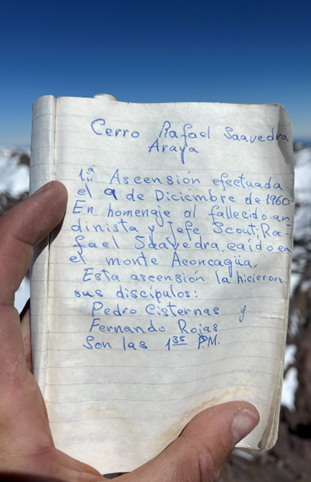 Cerro Rafael Saavedra
Araya
1ª Ascensión efectuada
el 9 de Diciembre de 1960
En homenaje al fallecido an
dinista y Jefe Scout: Ra=
fael Saavedra, caído en
el monte Aconcagüa,
Esta ascensión la hicieron
sus discípulos:
Pedro Cisternas y
Fernando Rojas
Son las 1 35 P.M.